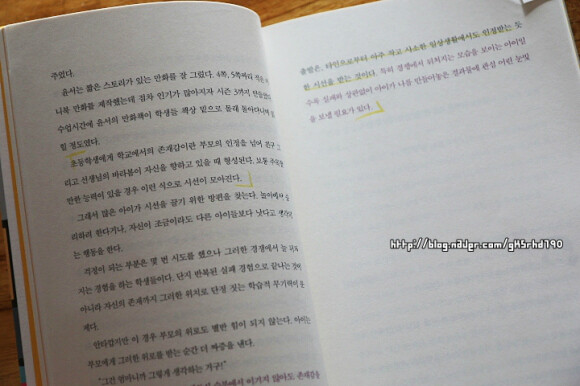 주었다.
윤서는 짧은 스토리가 있는 만화를 잘 그렸다. 4쪽, 5쪽짜리 작은 미
니북 만화를 제작했는데 점차 인기가 많아지자 시즌 3까지 만들었다.
수업시간에 윤서의 만화책이 학생들 책상 밑으로 몰래 돌아다니며 읽
힐 정도였다.
초등학생에게 학교에서의 존재감이란 부모의 인정을 넘어 친구 그
리고 선생님의 바라봄이 자신을 향하고 있을 때 형성된다. 보통 주목할
만한 능력이 있을 경우 이런 식으로 시선이 모아진다.
그래서 많은 아이가 시선을 끌기 위한 방편을 찾는다. 놀이에서 승
리하려 한다거나, 자신이 조금이라도 다른 아이들보다 낫다고 생각되
는 행동을 한다.
걱정이 되는 부분은 몇 번 시도를 했으나 그러한 경쟁에서 늘 뒤처
지는 경험을 하는 학생들이다. 단지 반복된 실패 경험으로 끝나는 것이
아니라 자신의 존재까지 그러한 위치로 단정 짓는 학습적 무기력이 문
제다.
안타깝지만 이 경우 부모의 위로도 별반 힘이 되지 않는다. 아이는
부모에게 그러한 위로를 받는 순간 더 짜증을 낸다.
"그건 엄마니까 그렇게 생각하는 거구!"
이기지 않아도 존재감을
출발은, 타인으로부터 아주 작고 사소한 일상생활에서도 인정받는 듯
한 시선을 받는 것이다. 특히 경쟁에서 뒤처지는 모습을 보이는 아이일
수록 실패와 상관없이 아이가 나름 만들어놓은 결과물에 관심 어린 눈빛
을 보낼 필요가 있다.
http://blog.naver.com/gk5rhd190